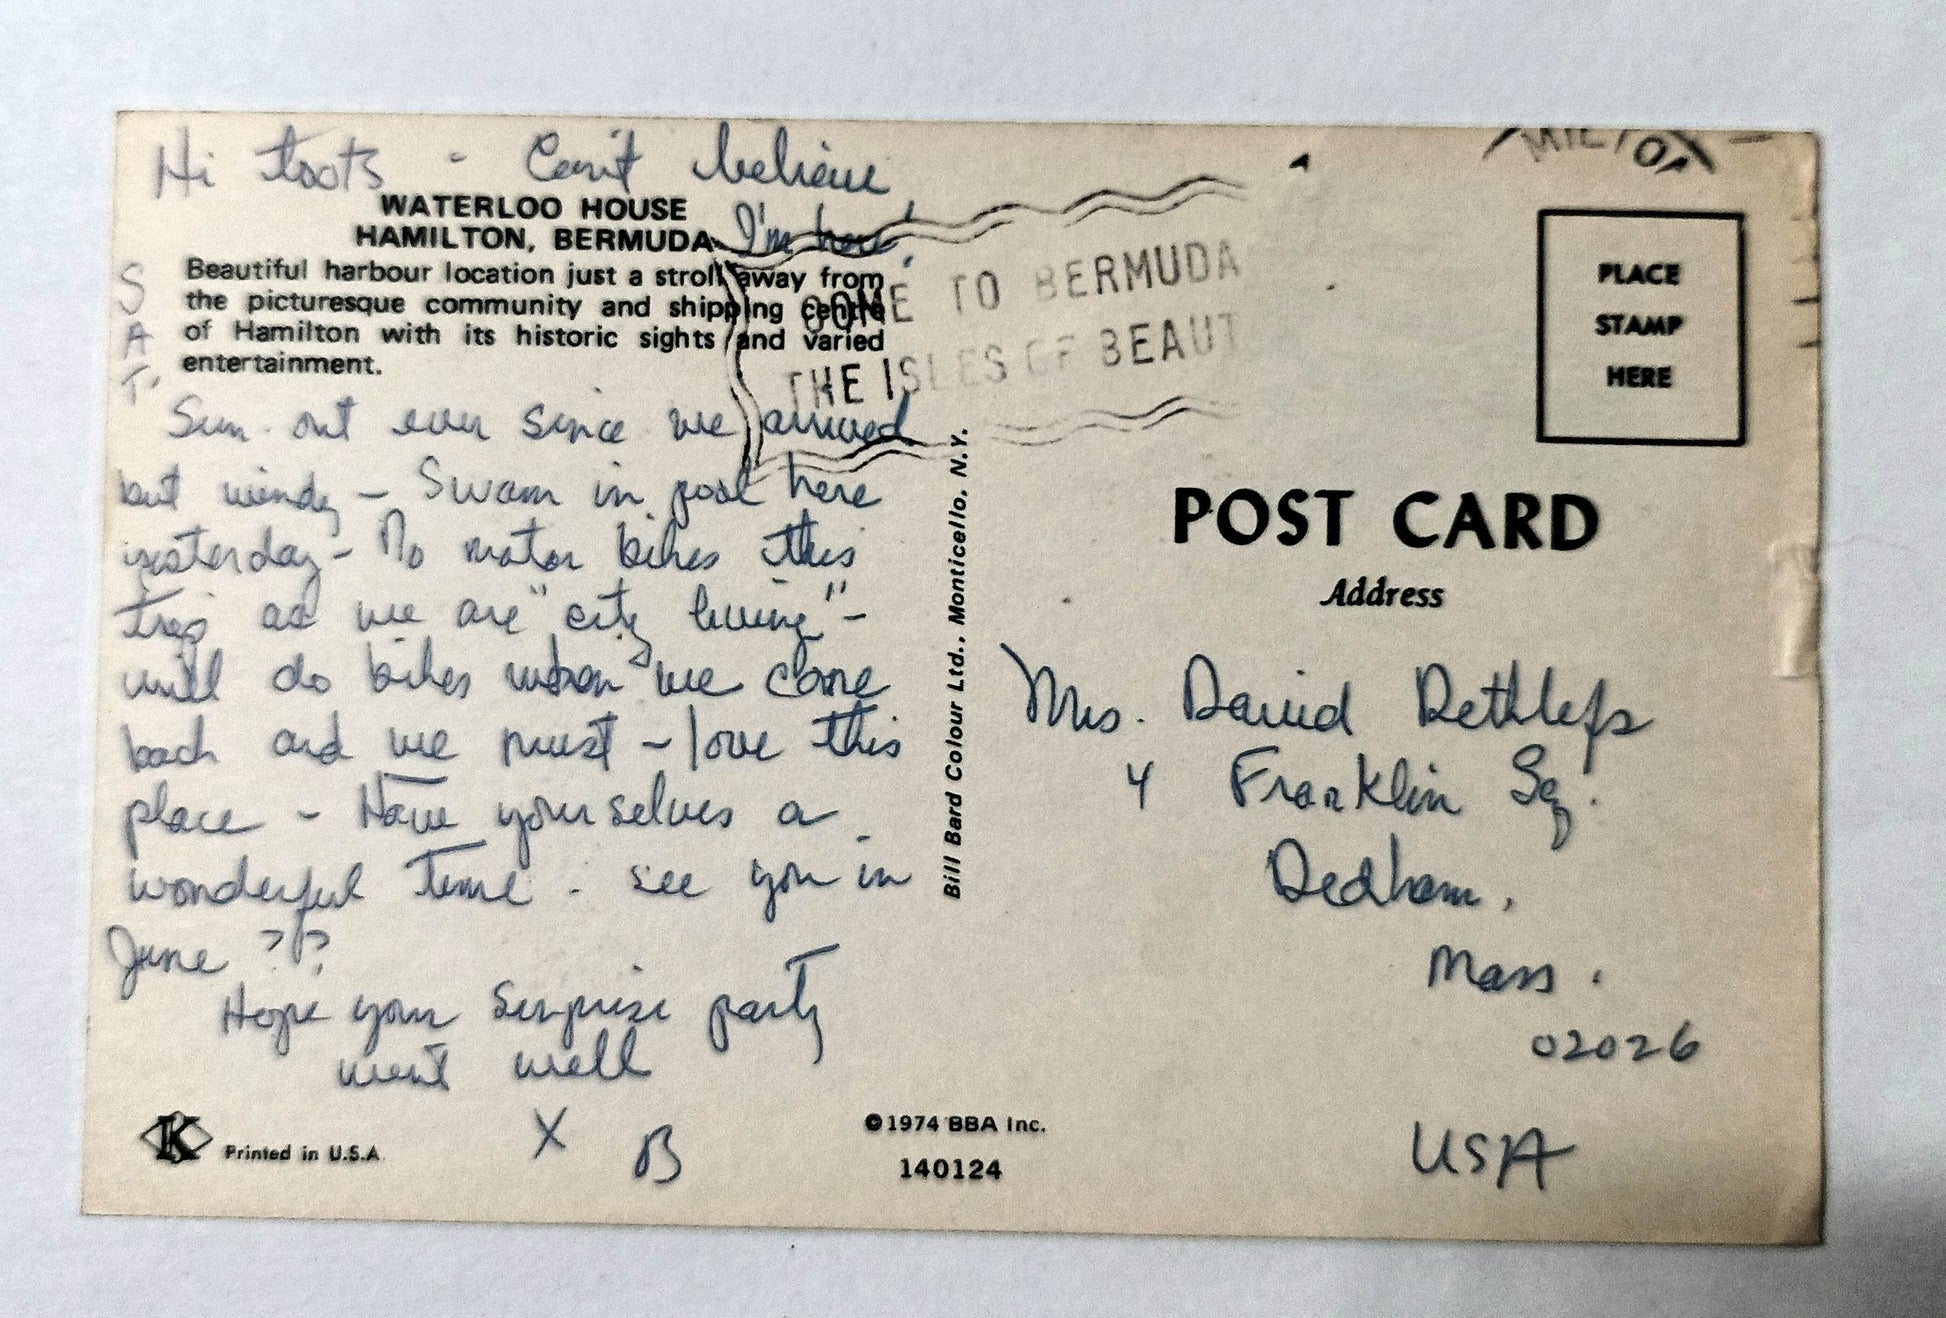 Hi Toots - Can't believe
I'm here!
WATERLOO HOUSE
HAMILTON, BERMUDA
Beautiful harbour location just a stroll away from
the picturesque community and shipping centre
of Hamilton with its historic sights and varied
entertainment.
SAT.
Sun out ever since we arrived
but windy - Swam in pool here
yesterday - No motor bikes this
trip as we are "city living" -
will do bikes when we come
back and we must - love this
place - Have yourselves a
wonderful time. see you in
June ??
Hope your surprise party
went well
X B
K Printed in U.S.A.
©1974 BBA Inc.
140124
Bill Bard Colour Ltd., Monticello, N.Y.
COME TO BERMUDA
THE ISLES OF BEAUT
PLACE
STAMP
HERE
POST CARD
Address
Mrs. David Dethlefs
4 Franklin Sq.
Dedham,
Mass.
02026
USA